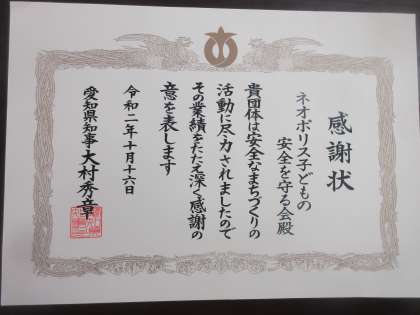 感謝状
ネオポリス子どもの
安全を守る会殿
貴団体は安全なまちづくりの
活動に尽力されましたので
その業績をたたえ深く感謝の
意を表します
令和二年十月十六日
愛知県知事大村秀章